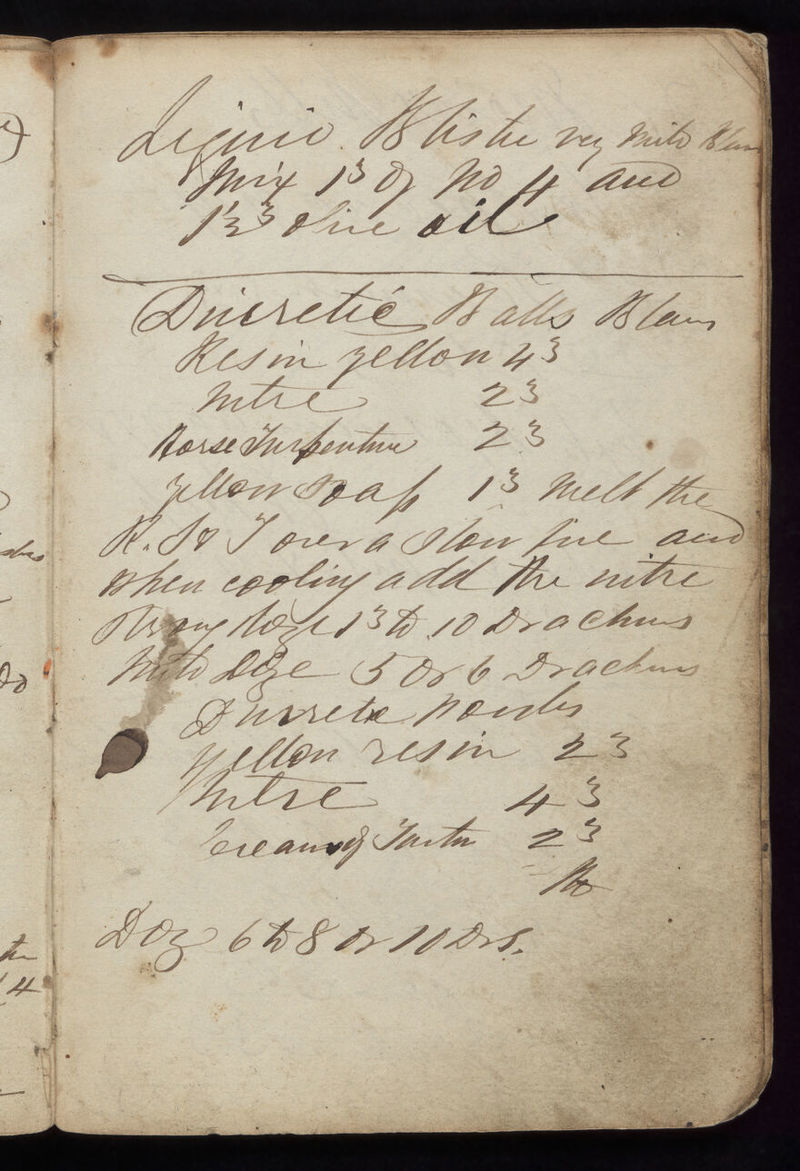 Liquid Blister very mild Blain
Mix 1℥ of No 4 and
1½℥ olive oil
Diuretic Balls Blain
Resin yellow 4℥
Nitre 2℥
Horse Turpentine 2℥
yellow Soap 1℥ Melt the
R. S & T over a Slow fire and
when cooling add the nitre
Strong doze 1℥ to 10 Drachms
Mild doze 5 or 6 Drachms
yellow resin 2℥
Nitre 4℥
Cream of Tartar 2℥
Doz 6 to 8 or 10 Drs.